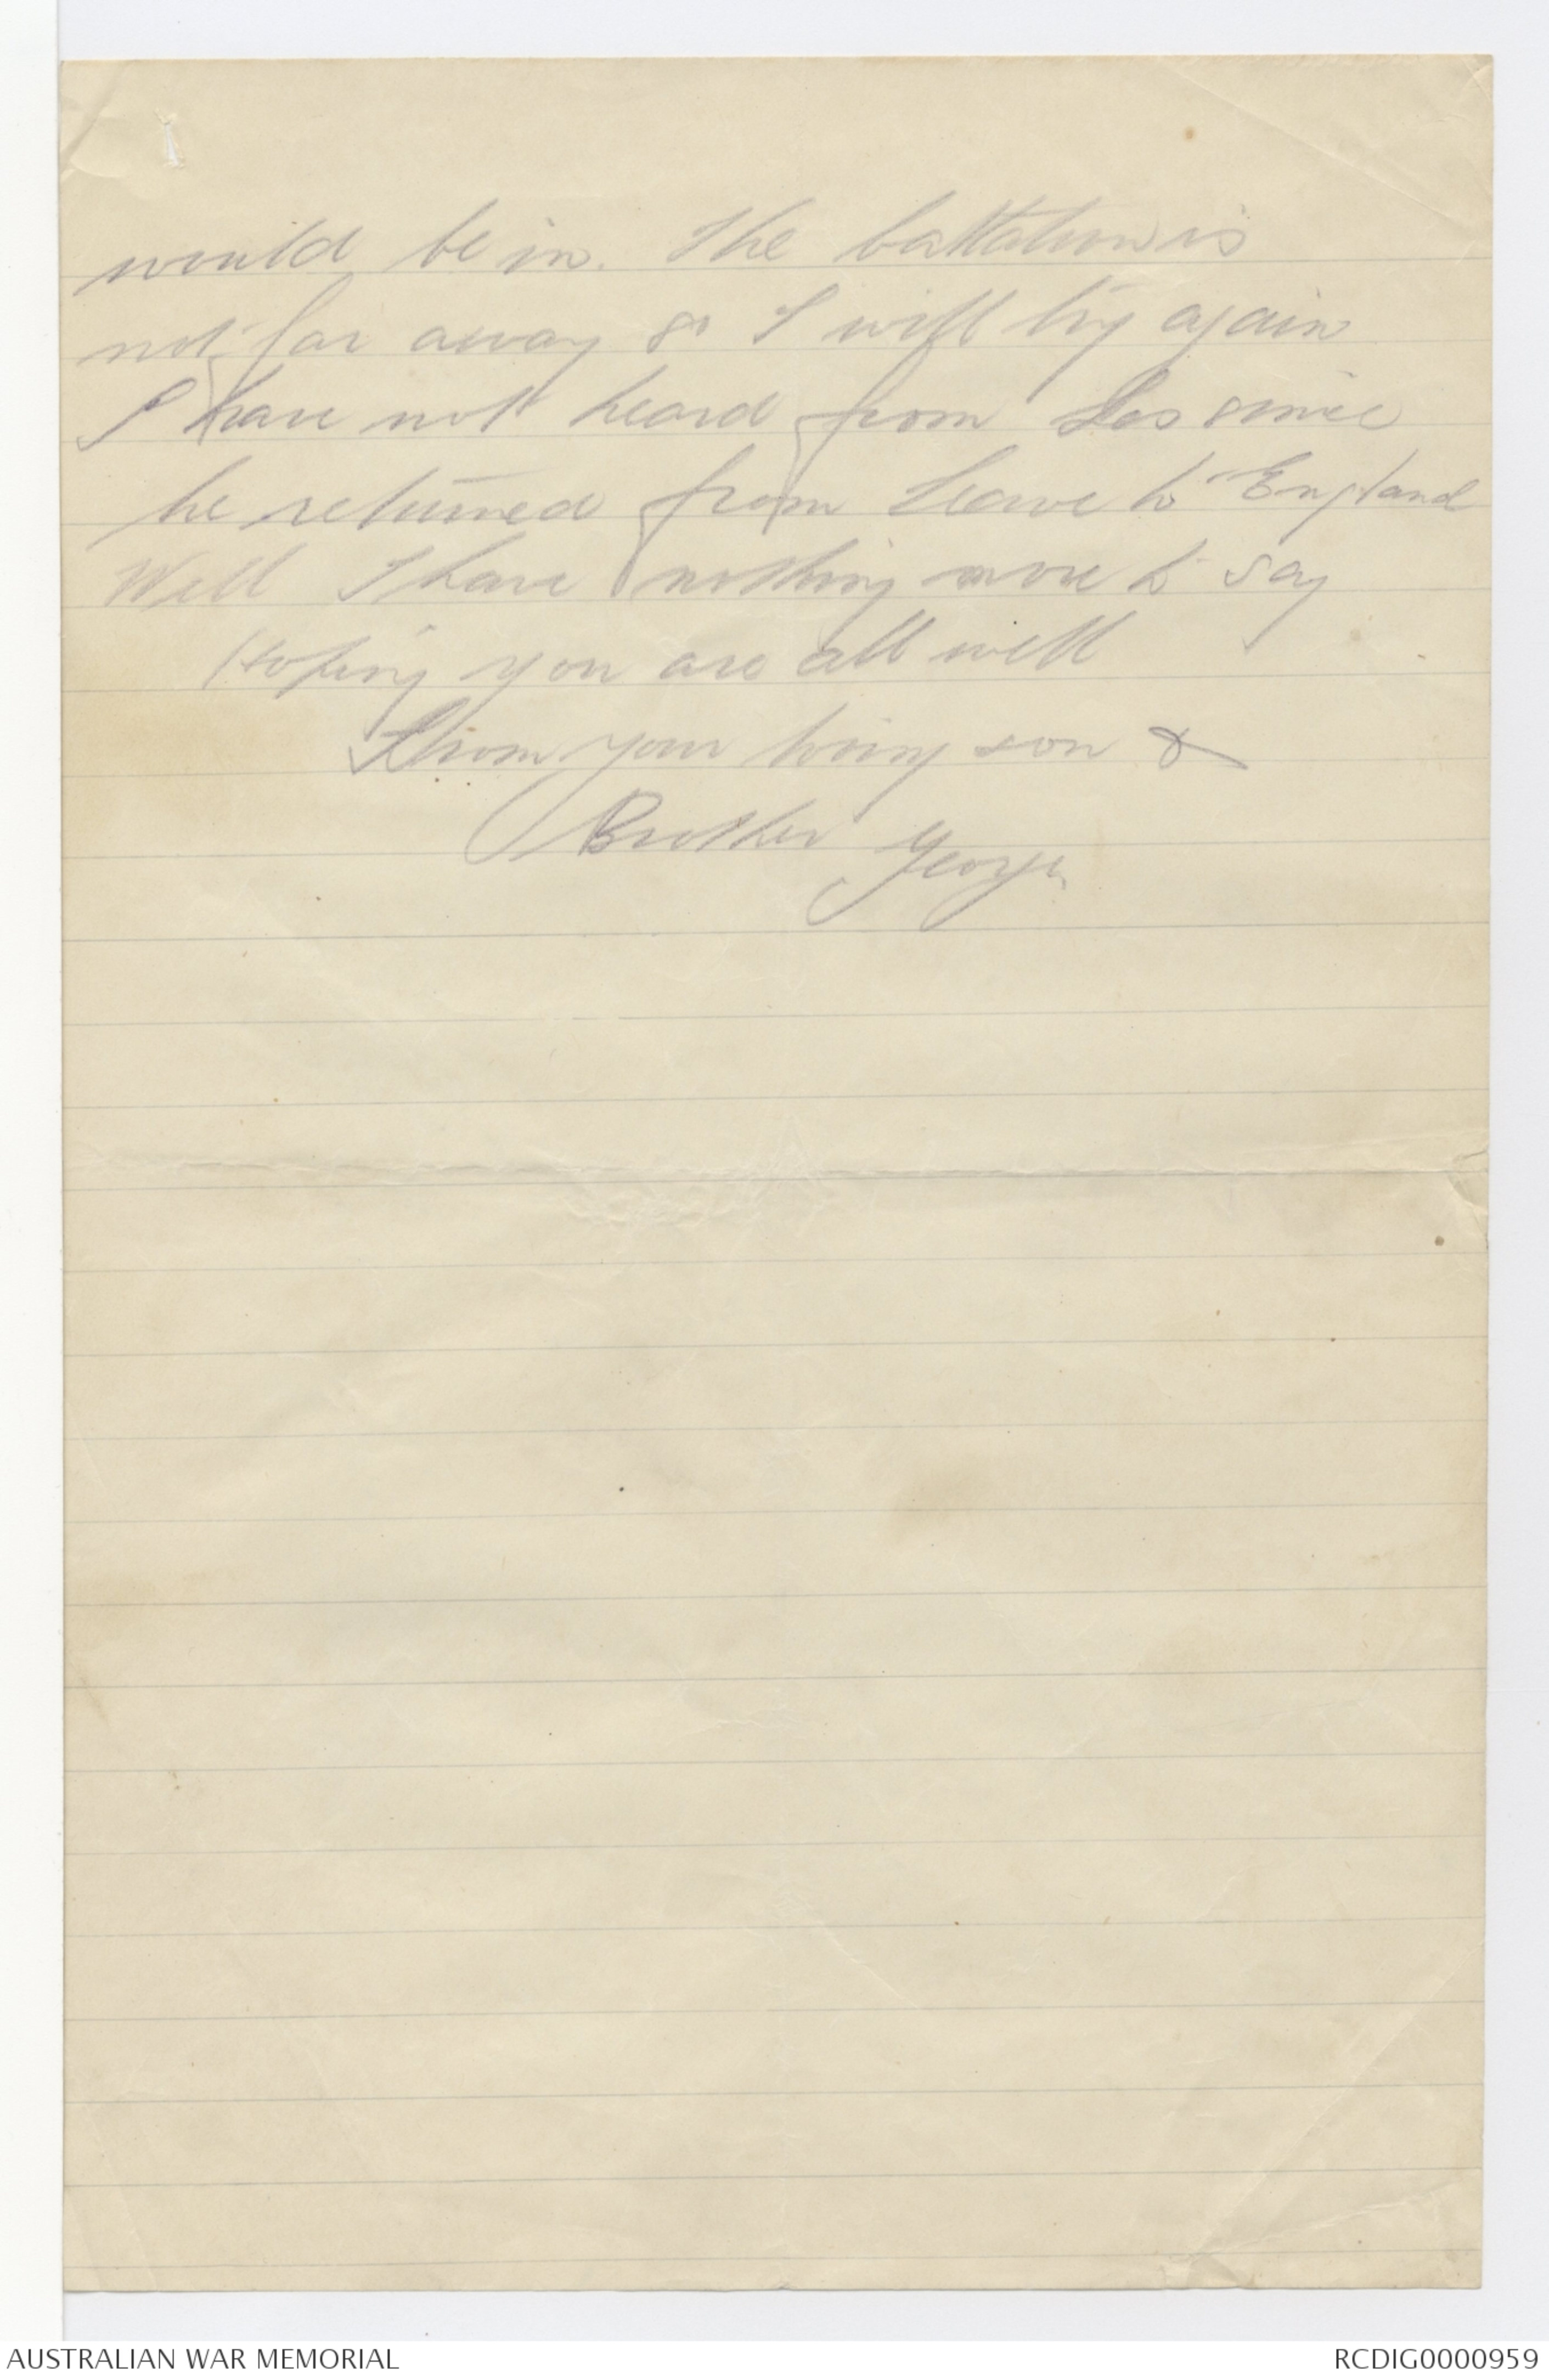 would be in. The battalion is
not far away so I will try again
I have not heard from Les since
he returned from leave to England
Well I have nothing more to say
Hoping you are all well
From your loving son &
Brother George
AUSTRALIAN WAR MEMORIAL
RCDIG0000959